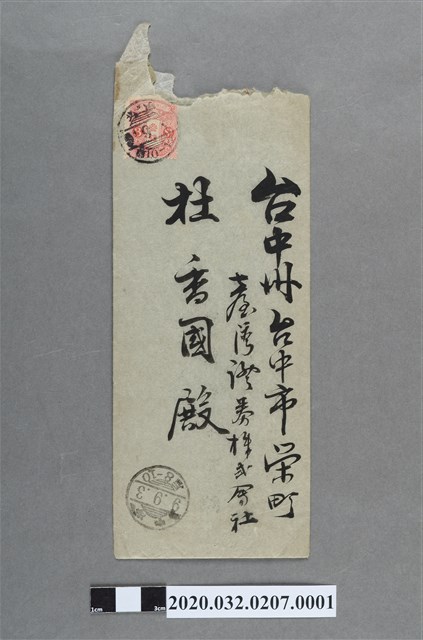 台中州台中市栄町
臺灣證券株式會社
杜香國殿
9.9.3
后8-10
1cm
3cm
2020.032.0207.0001